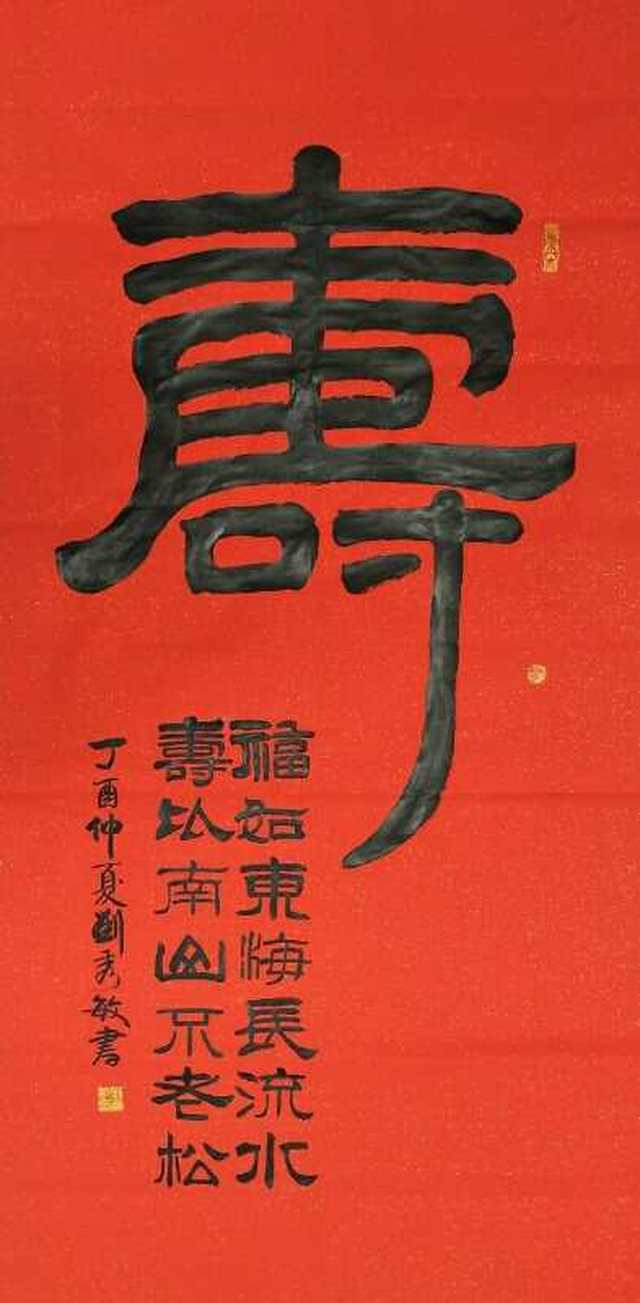 壽
福如東海長流水
壽比南山不老松
丁酉仲夏劉秀敏書